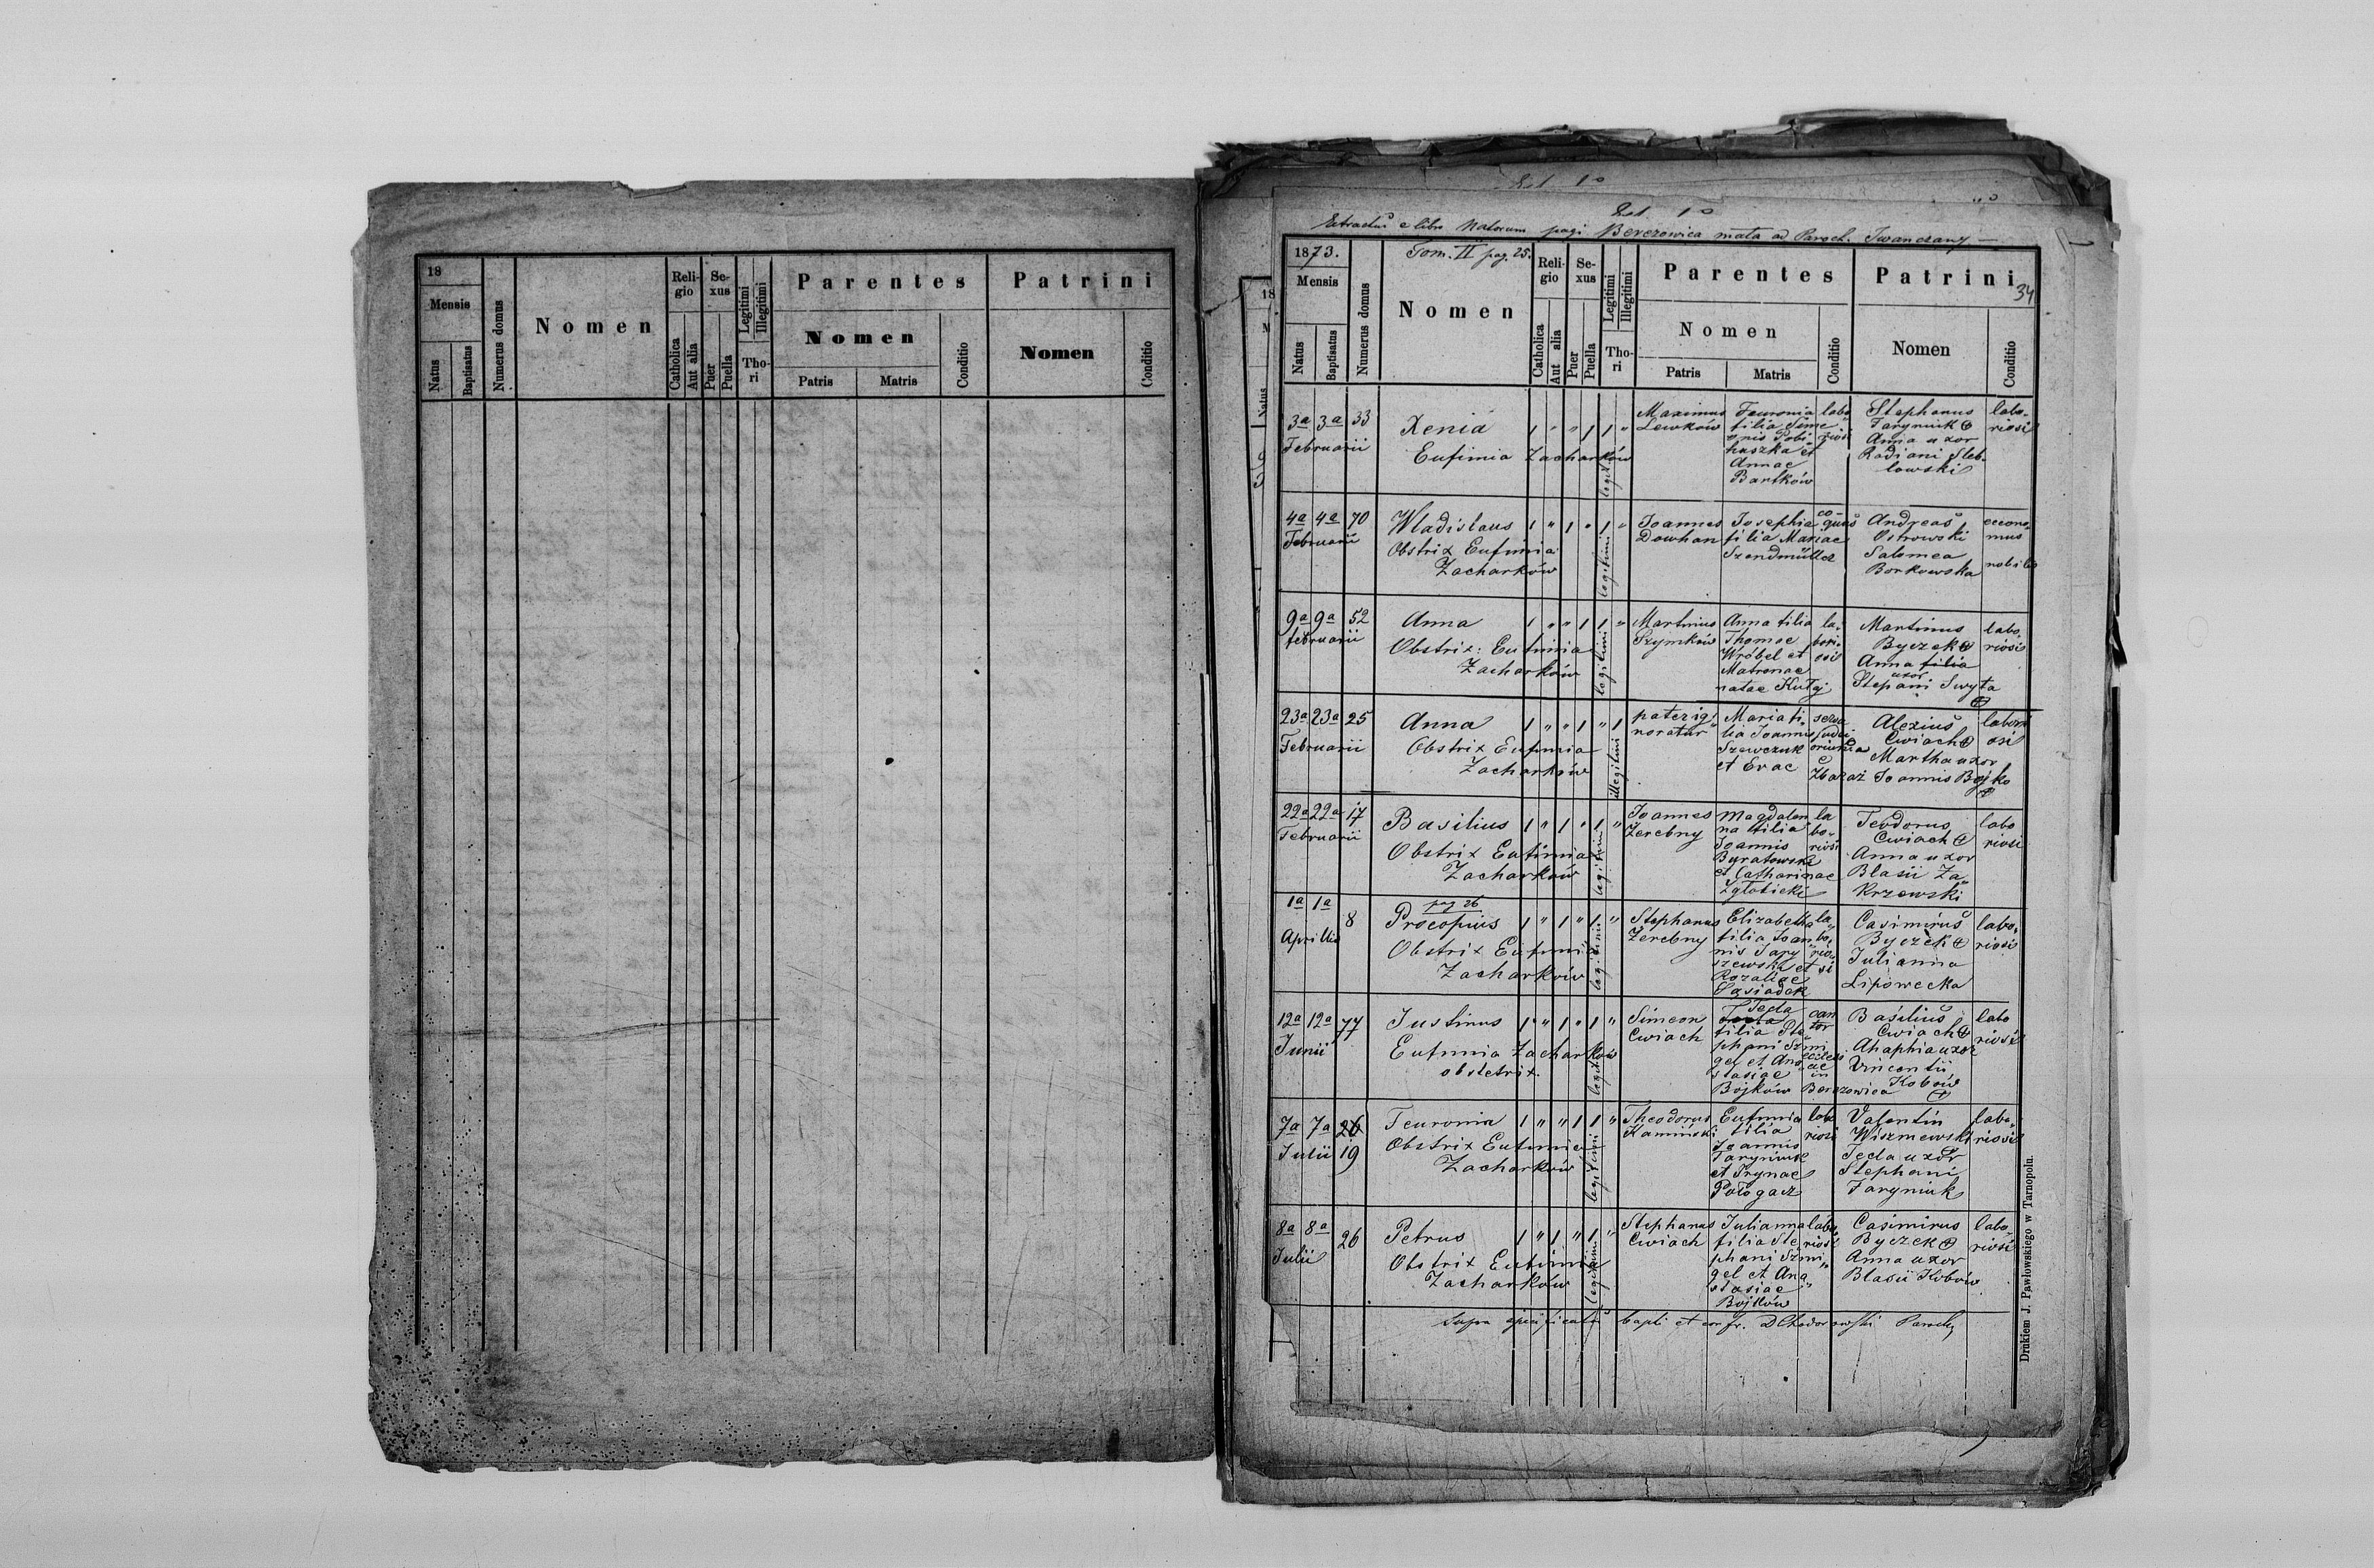 18
Mensis
Natus
Baptisatus
Numerus domus
Nomen
Religio
Catholica
Aut alia
Sexus
Puer
Puella
Legitimi
Illegitimi
Thori
Parentes
Nomen
Patris
Matris
Conditio
Patrini
Nomen
Conditio
Extractus e libro Natorum pagi Berezowica mała ad Paroch. Iwanczany
1873.
Tom. II pag. 25.
34
Mensis
Natus
Baptisatus
Numerus domus
Nomen
Religio
Catholica
Aut alia
Sexus
Puer
Puella
Legitimi
Illegitimi
Thori
Parentes
Nomen
Patris
Matris
Conditio
Patrini
Nomen
Conditio
3a 3a 33
Februarii
Xenia
Eufimia Zacharków
1 " " 1 1 "
Maximus
Lewków
filia Sime
onis
et
Annae
Bartków
Stephanus
Jaryniuk
Anna uxor
Radiani Sleb-
lowski
labo-
riosi
4a 4a 70
Februarii
Wladislaus
Obstrix Eufimia
Zacharków
1 " 1 " 1 "
legitimi
Joannes
Dowhan
Josephia
filia Mariae
Szendmüller
co-
quus
Andreas
Ostrowski
Salomea
Borkowska
oecono-
mus
nobiles
9a 9a 52
februarii
Anna
Obstrix: Eufimia
Zacharków
1 " " 1 1 "
legitimi
Martinus
Szymków
Anna filia
Thomae
Wróbel et
Matronae
natae
la-
bori-
osi
Martinus
Byczek
Anna filia
uxor
Stepani Swyta
labo-
riosi
23a 23a 25
Februarii
Anna
Obstrix Eufimia
Zacharków
1 " " 1 " 1
illegitimi
pater ig-
noratur
Maria fi-
lia Joannis
Szewczuk
et Evae
Zbaraż
Alexius
Cwiach
Martha uxor
Joannis Bojko
labori
osi
22a 22a 17
Februarii
Basilius
Obstrix Eufimia
Zacharków
1 " 1 " 1 "
legitimi
Joannes
Zerebny
Magdale
na filia
Joannis
et Catharinae
la
bo-
riosi
Teodorus
Cwiach
Anna uxor
Blasii Za
krzewski
labo
riosi
1a 1a 8
Aprillis
pag 26
Procopius
Obstrix Eufimia
Zacharków
1 " 1 " 1 "
legitimi
Stephanus
Zerebny
Elizabetha
filia Joan
nis Jary
szewski et
Rozaliae
Sasiadek
la
bo-
rio-
si
Casimirus
Byczek
Julianna
Lipowecka
labo-
riosi
12a 12a 77
Junii
Justinus
Eufimia Zacharków
obstetrix.
1 " 1 " 1 "
legitimi
Simeon
Cwiach
Tecla
filia Ste
phani Szmi
gel et Ana
stasiae
Bojków
can
tor
in
Berezowica
Basilius
Cwiach
Ahaphia uxor
Vincentii
Kobów
labo
riosi
7a 7a 26
Julii 19
Feuronia
Obstrix Eufimia
Zacharków
1 " " 1 1 "
legitimi
Theodorus
Kaminski
Eufimia
filia
Joannis
Jaryniuk
et Irynae
Połogacz
labo
riosi
Valentin
Wiszniewski
Tecla uxor
Stephani
Jaryniuk
labo-
riosi
8a 8a 26
Julii
Petrus
Obstrix Eufimia
Zacharków
1 " 1 " 1 "
legitimi
Stephanus
Cwiach
Julianna
filia Ste
phani Szmi
gel et Ana
stasiae
Bojków
labo
riosi
Casimirus
Byczek
Anna uxor
Blasii Kobów
labo-
riosi
Supra bapti et
Drukiem J. Pawłowskiego w Tarnopolu.